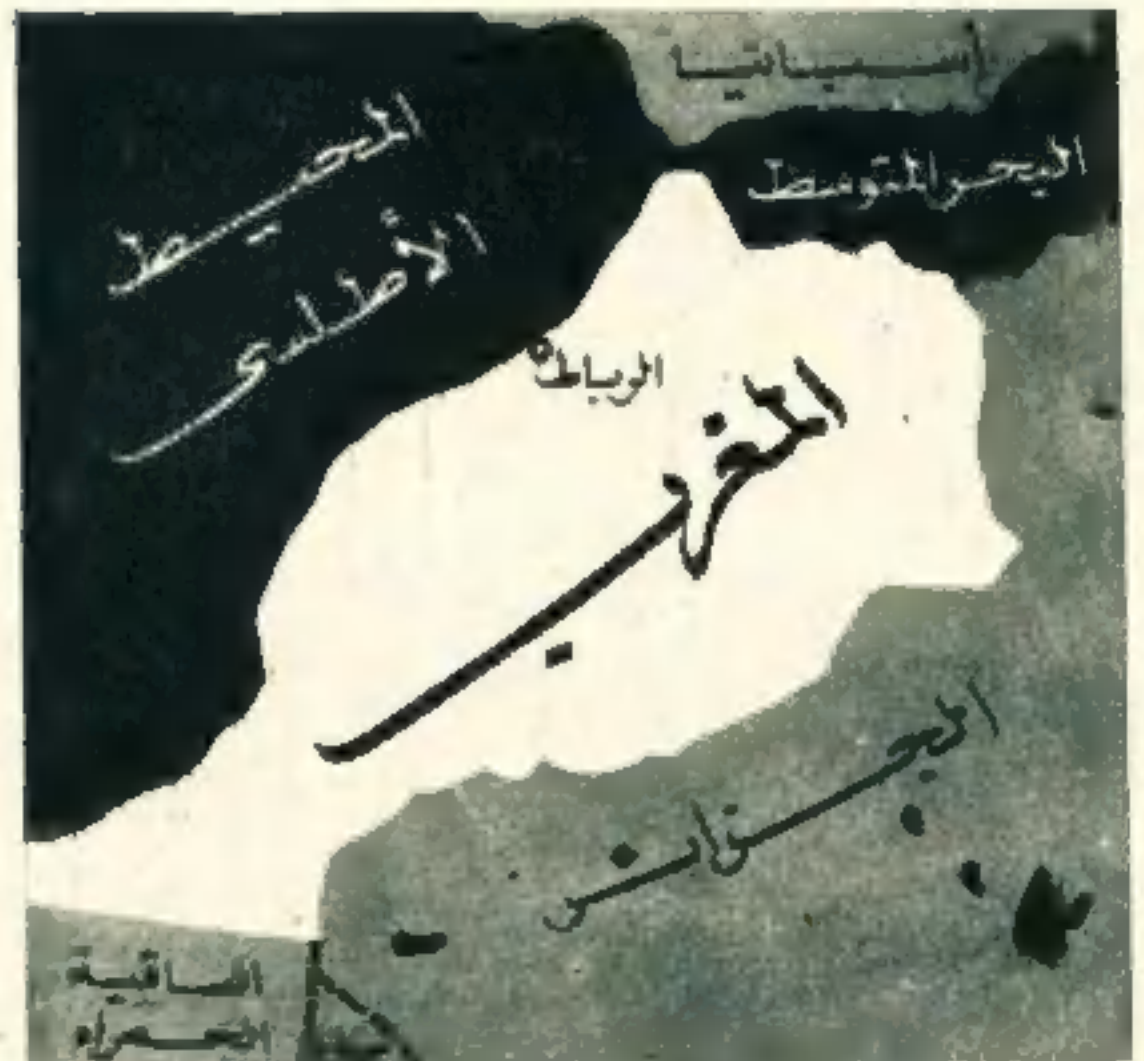 أسبانيا
المحيط
الأطلسى
البحر المتوسط
الرباط
المغرب
الجزائر
الساقية
الحمراء